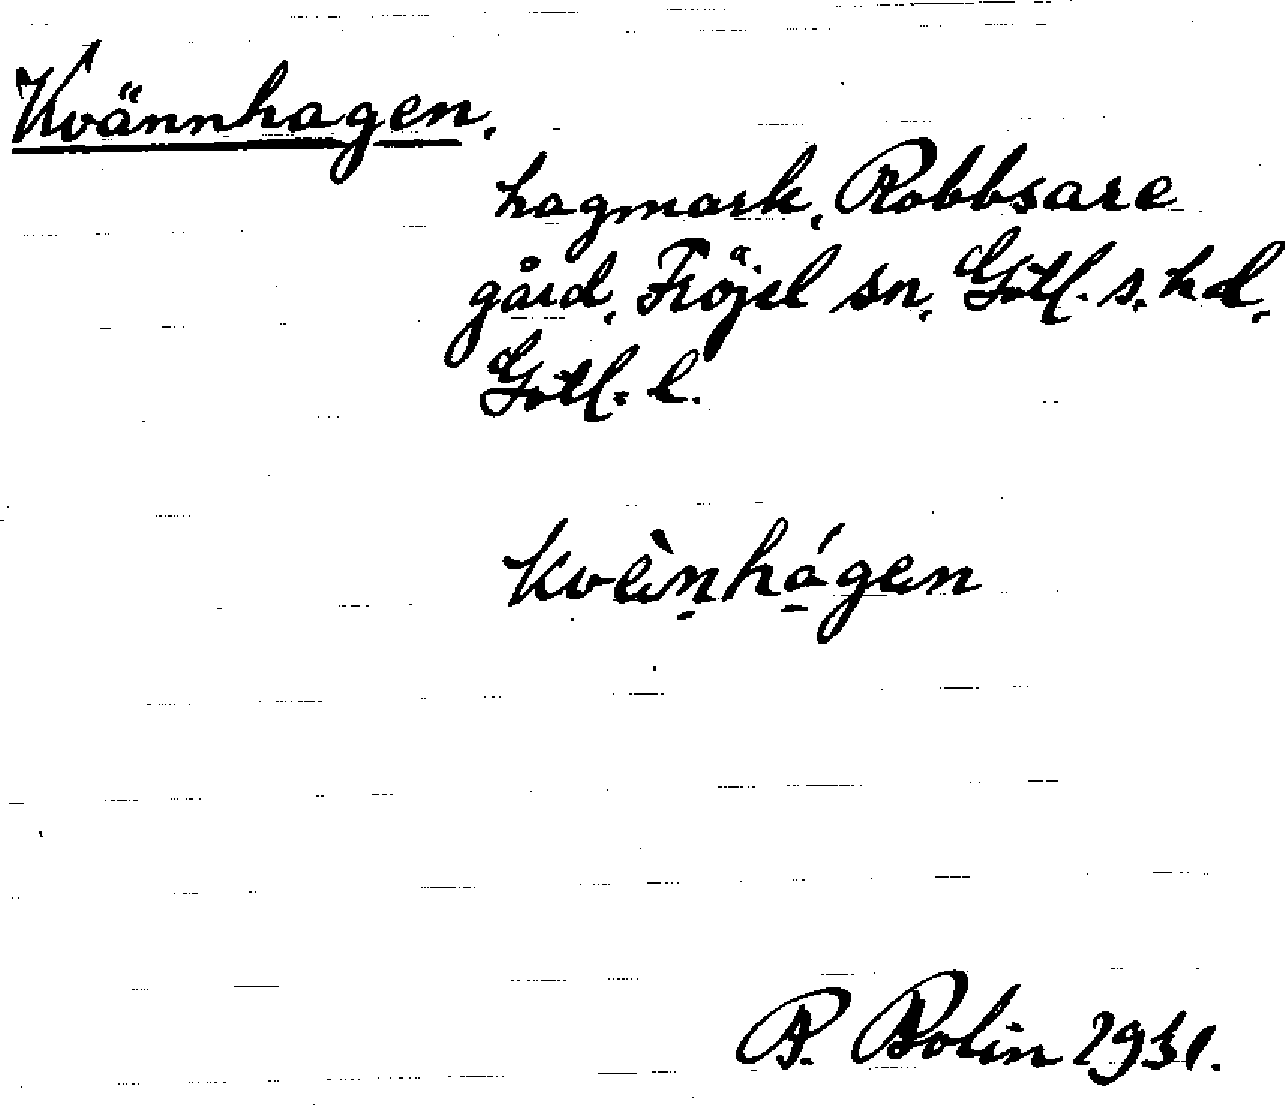 Kvännhagen.
hagmark, Robbsare
gård, Fröjel sn, Gotl. s. hd,
Gotl. l.
kvèi̯n̠há̠gen
P. Bolin 1931.